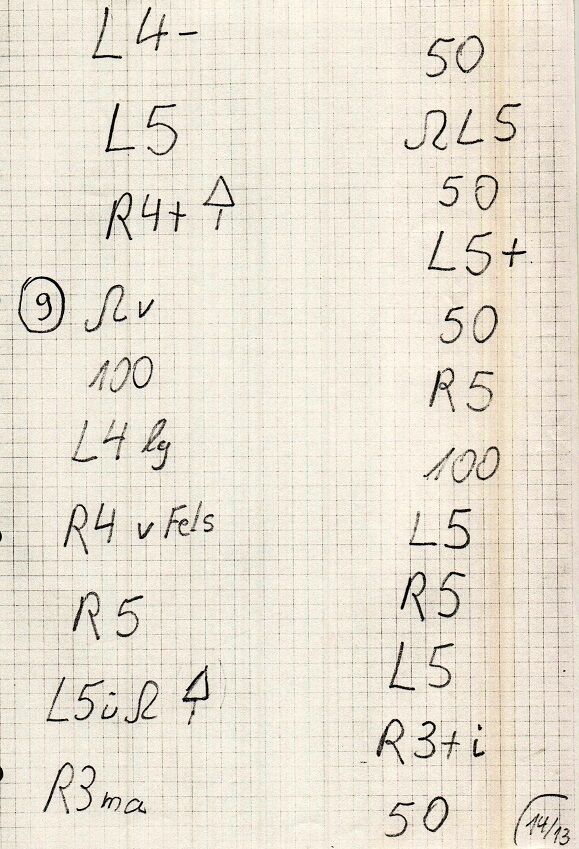 L4-
L5
R4+
9
Ωv
100
L4 lg
R4 v Fels
R5
L5 ü Ω
R3 ma
50
ΩL5
50
L5+
50
R5
100
L5
R5
L5
R3+i
50
14/13